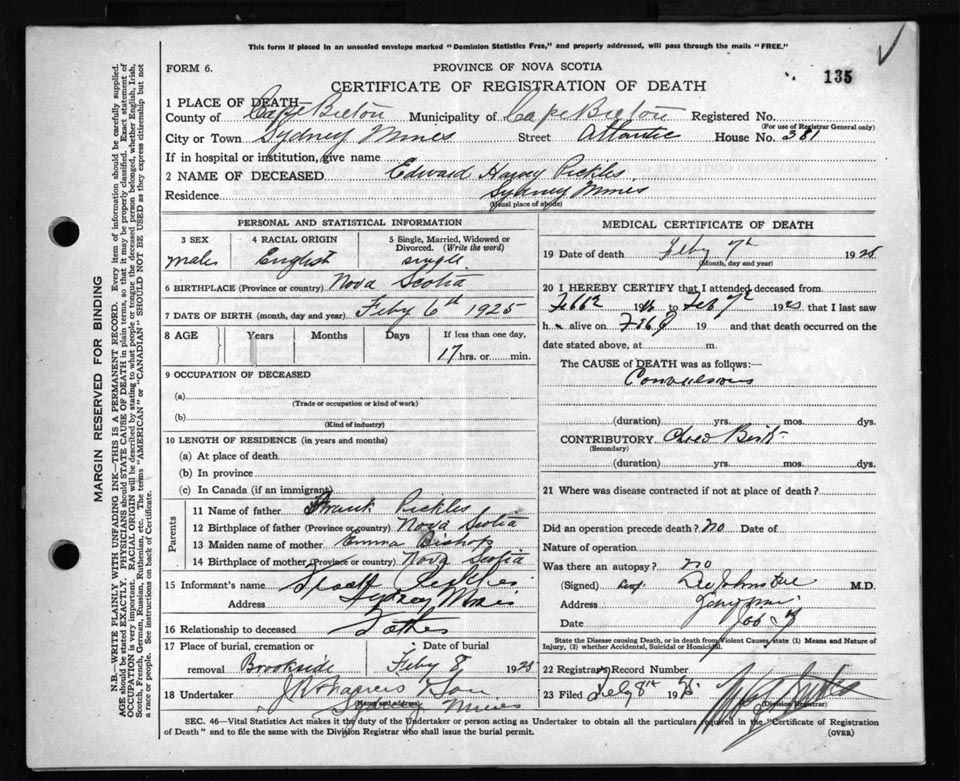 This form if placed in an unsealed envelope marked "Dominion Statistics Free," and properly addressed, will pass through the mails "FREE."
FORM 6.
PROVINCE OF NOVA SCOTIA
135
CERTIFICATE OF REGISTRATION OF DEATH
1 PLACE OF DEATH—
County of Cape Breton Municipality of Cape Breton Registered No.
(For use of Registrar General only)
City or Town Sydney Mines Street Atlantic House No. 381
If in hospital or institution, give name
2 NAME OF DECEASED Edward Harvey Pickles
Residence Sydney Mines
(Usual place of abode)
PERSONAL AND STATISTICAL INFORMATION
3 SEX 4 RACIAL ORIGIN 5 Single, Married, Widowed or Divorced. (Write the word)
male English single
6 BIRTHPLACE (Province or country) Nova Scotia
7 DATE OF BIRTH (month, day and year) Feby 6th 1925
8 AGE Years Months Days If less than one day,
17 hrs. or min.
9 OCCUPATION OF DECEASED
(a)
(Trade or occupation or kind of work)
(b)
(Kind of industry)
10 LENGTH OF RESIDENCE (in years and months)
(a) At place of death
(b) In province
(c) In Canada (if an immigrant)
Parents
11 Name of father Frank Pickles
12 Birthplace of father (Province or country) Nova Scotia
13 Maiden name of mother Emma Bishop
14 Birthplace of mother (Province or country) Nova Scotia
15 Informant's name Pickles
Address Sydney Mines
16 Relationship to deceased Father
17 Place of burial, cremation or removal Brookside
Date of burial
Feby 8 1925
18 Undertaker & Son
(Name and address)
Sydney Mines
MEDICAL CERTIFICATE OF DEATH
19 Date of death Feby 7th 1925
(Month, day and year)
20 I HEREBY CERTIFY that I attended deceased from
19 to Feb 7 1925 that I last saw
h alive on Feb 19 and that death occurred on the
date stated above, at m.
The CAUSE of DEATH was as follows:—
Convulsions
(duration) yrs. mos. dys.
CONTRIBUTORY
(Secondary)
(duration) yrs. mos. dys.
21 Where was disease contracted if not at place of death?
Did an operation precede death? no Date of
Nature of operation
Was there an autopsy? no
(Signed) M.D.
Address
Date
State the Disease causing Death, or in death from Violent Causes, state (1) Means and Nature of Injury, (2) whether Accidental, Suicidal or Homicidal.
22 Registrar's Record Number
23 Filed Feby 8th 1925
(Division Registrar)
SEC. 46—Vital Statistics Act makes it the duty of the Undertaker or person acting as Undertaker to obtain all the particulars required in the "Certificate of Registration
of Death" and to file the same with the Division Registrar who shall issue the burial permit.
(OVER)
MARGIN RESERVED FOR BINDING
N.B.—WRITE PLAINLY WITH UNFADING INK—THIS IS A PERMANENT RECORD. Every items of information should be carefully supplied.
AGE should be stated EXACTLY. PHYSICIANS should STATE CAUSE OF DEATH in plain terms, so that it may be properly classified. Exact statement of
OCCUPATION is very important. RACIAL ORIGIN will be described by stating to what people or tongue the deceased person belonged, whether English, Irish,
Scotch, French, German, Russian, Ruthenian, etc. The terms "AMERICAN" or "CANADIAN" SHOULD NOT BE USED as they express citizenship but not
a race or people. See instructions on back of Certificate.